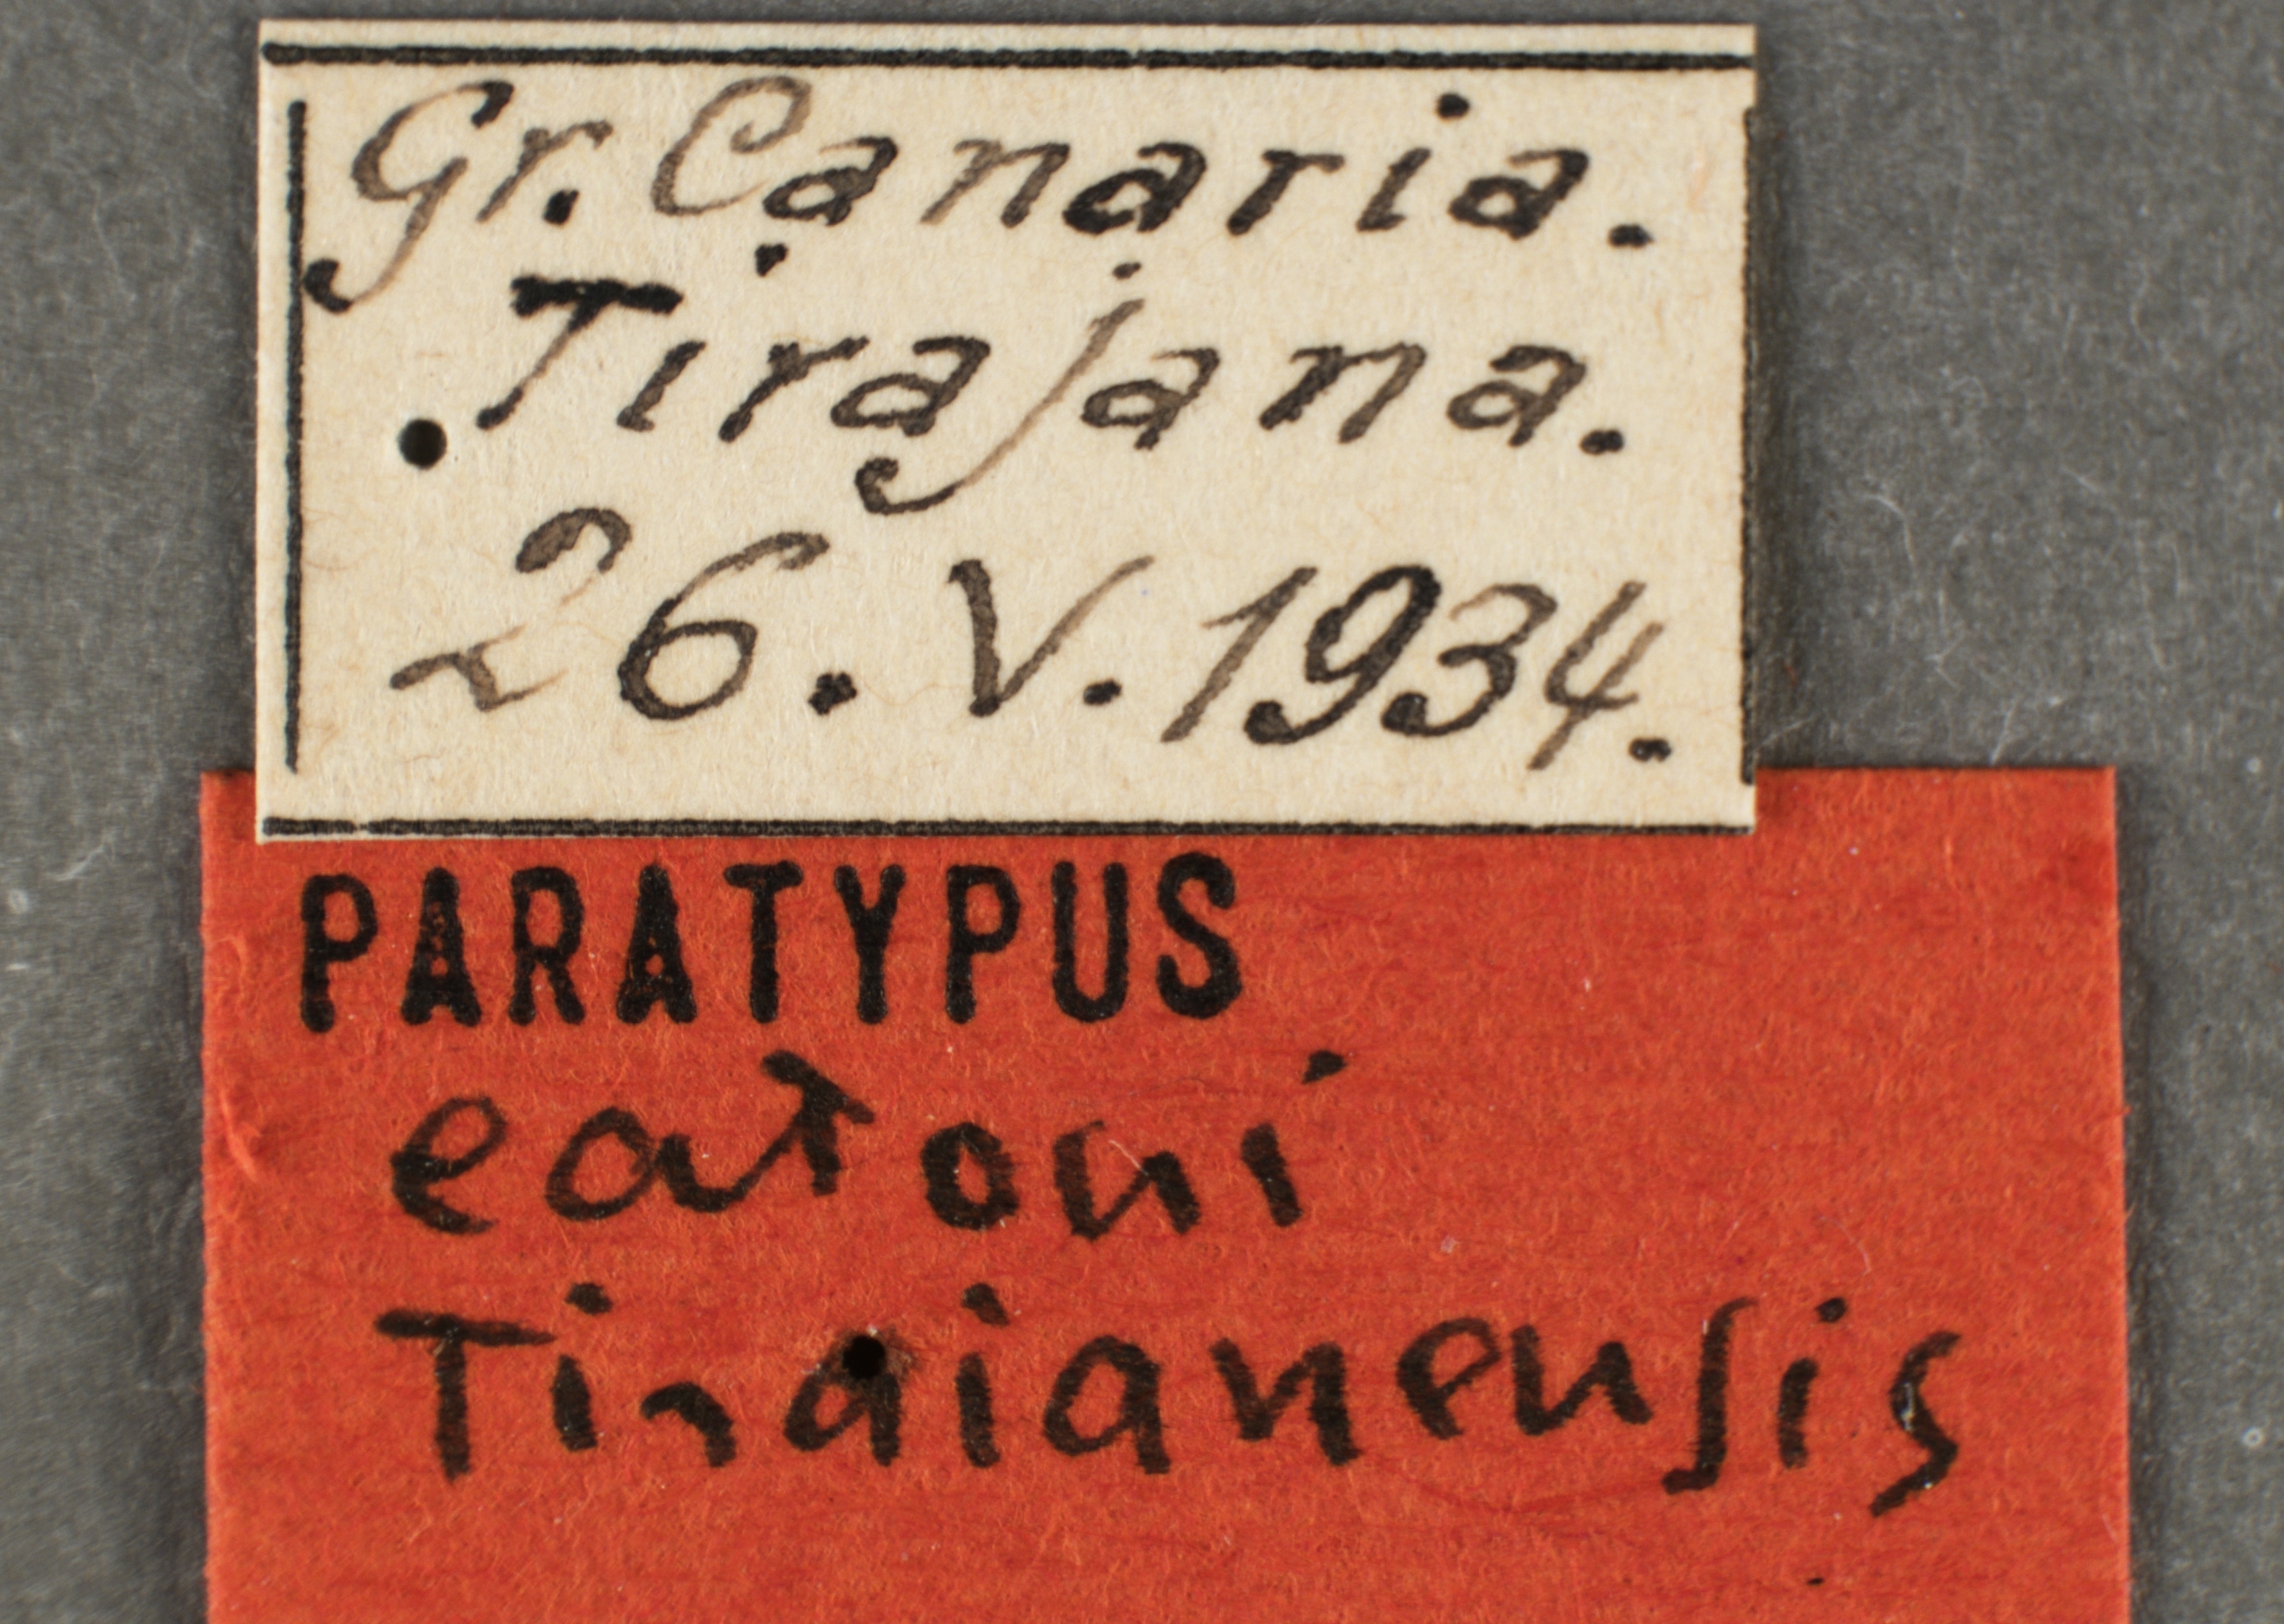 Gr. Canaria.
Tirajana.
26. V. 1934.
PARATYPUS
eatoni
Tiraianensis